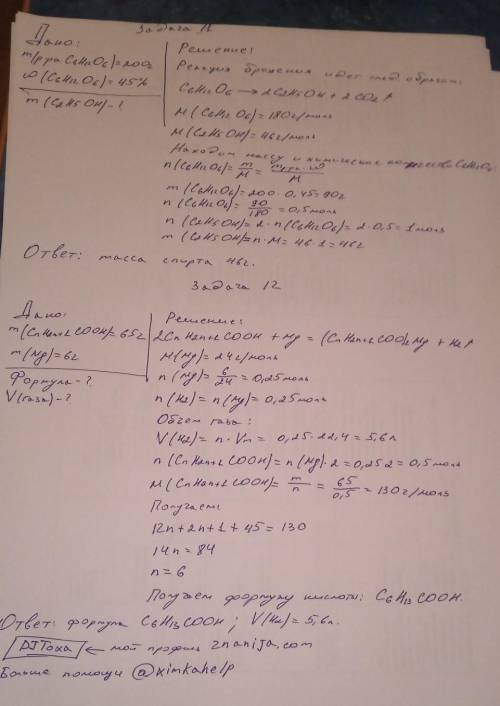 Задача 11
Дано:
m(р-ра C6H12O6)=200г
ω(C6H12O6)=45%
m(C2H5OH)-?
Решение:
Реакция брожения идет след. образом:
C6H12O6 → 2C2H5OH + 2CO2↑
M(C6H12O6)=180г/моль
M(C2H5OH)=46г/моль
Находим массу и химическое количество C6H12O6:
n(C6H12O6)= m/M = mр-ра·ω/M
m(C6H12O6)=200·0,45=90г
n(C6H12O6)= 90/180 =0,5моль
n(C2H5OH)=2·n(C6H12O6)=2·0,5=1моль
m(C2H5OH)=n·M=46·1=46г
Ответ: масса спирта 46г.
Задача 12
Дано:
m(CnH2n+1COOH)=65г
m(Mg)=6г
Формула-?
V(газа)-?
Решение:
2CnH2n+1COOH + Mg = (CnH2n+1COO)2Mg + H2↑
M(Mg)=24г/моль
n(Mg)= 6/24 =0,25моль
n(H2)=n(Mg)=0,25моль
Объем газа:
V(H2)=n·Vm=0,25·22,4=5,6л
n(CnH2n+1COOH)=n(Mg)·2=0,25·2=0,5моль
M(CnH2n+1COOH)= m/n = 65/0,5 =130г/моль
Получаем:
12n+2n+1+45=130
14n=84
n=6
Получаем формулу кислоты: C6H13COOH.
Ответ: формула C6H13COOH; V(H2)=5,6л.
DJToxa ← мой профиль znanija.com
Больше помощи @ximkahelp